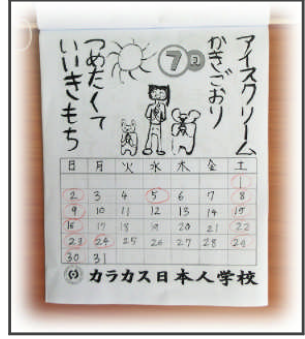 アイスクリーム
かきごおり
7月
つめたくて
いいきもち
日 月 火 水 木 金 土
1
2 3 4 5 6 7 8
9 10 11 12 13 14 15
16 17 18 19 20 21 22
23 24 25 26 27 28 29
30 31
カラカス日本人学校